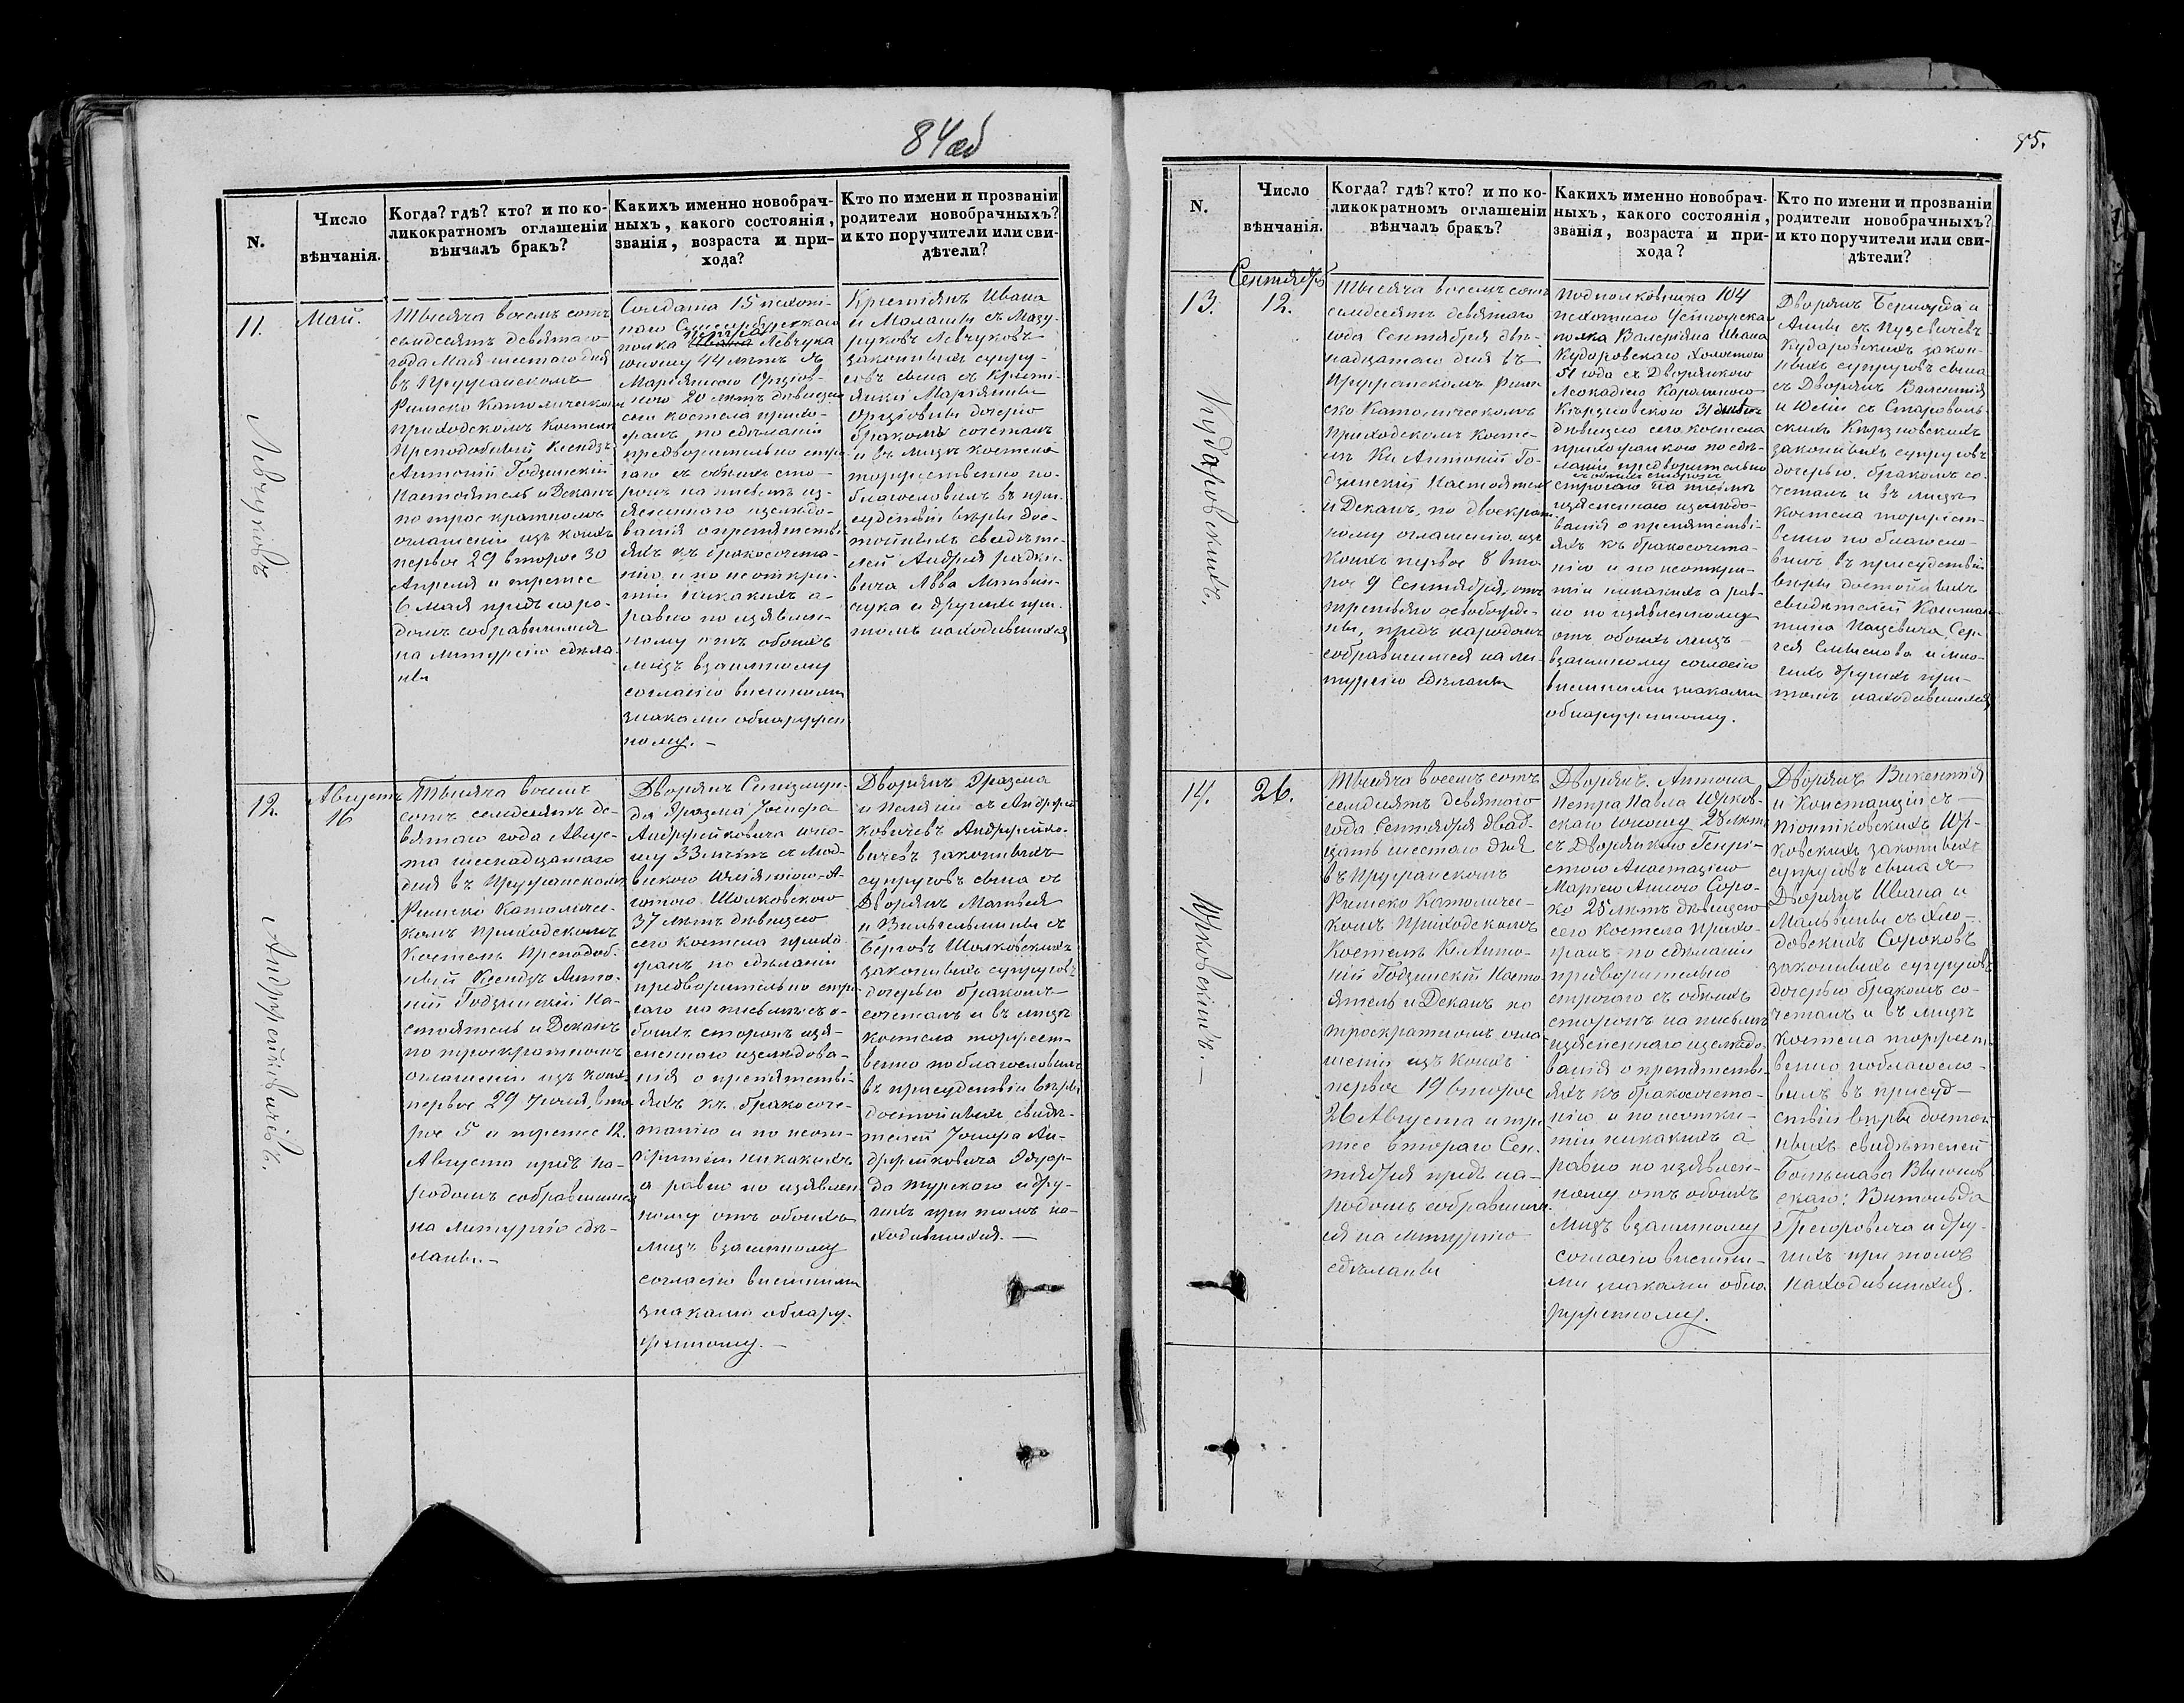 84 об
N.
Число
вѣнчанія.
Когда? гдѣ? кто? и по ко-
ликократномъ оглашеніи
вѣнчалъ бракъ?
Какихъ именно новобрач-
ныхъ, какого состоянія,
званія, возраста и при-
хода?
Кто по имени и прозваніи
родители новобрачныхъ?
и кто поручители или сви-
дѣтели?
11.
Май.
Левчукивъ
Тысяча восемъ сотъ
семдесятъ девятаго
года Мая шестаго дня
въ Пружанскомъ
Римско Католическом
приходскомъ Костелѣ
Преподобный Ксендзъ
Антоній Годзинскій
Настоятель и Деканъ
по трое кратномъ
оглашеніи изъ коихъ
первое 29 второе 30
Апреля и третее
6 мая предъ наро-
домъ собравшимся
на литургію сдѣла-
ны
Солдата 15 пехот-
наго
полка Левчука
юношу 44 лѣтъ съ
Маріянною
20 лѣтъ дѣвицею
сего костела прихо-
жанъ, по сдѣланіи
предворительно стро
гаго съ обѣихъ сто-
ронъ на письмѣ из-
ясненнаго изслѣдо-
ванія о препятстві
яхъ къ бракосочета-
нію и по неоткры-
тіи никакихъ а-
равно по изявлен-
ному отъ обоихъ
лицъ взаимному
согласію внешними
знаками обнаружен
ному. –
Крестіянъ Ивана
и Маланіи съ Мазу-
руковъ Левчуковъ
законныхъ супру-
говъ сына съ Крест-
янки Маріянны
дочерію
бракомъ сочеталъ
и въ лицѣ костела
торжественно по-
благословилъ въ при-
судствіи вѣры дос-
тойныхъ свидѣте-
лей Андрея Радке-
вича Лвва Матвей-
чука и другихъ при
томъ находившихся
12.
Августъ
16
Анджейкивичивъ.
Тысяча восемъ
сотъ семдесятъ де-
вятаго года Авгус-
та шеснадцатаго
дня въ Пружанскомъ
Римско Католичес-
комъ приходскомъ
Костелѣ Преподоб-
ный Ксендзъ Анто-
ній Годзинскій На-
стоятель и Деканъ
по троекратномъ
оглашеніи изъ коихъ
первое 29 Іюля, вто-
рое 5 и третее 12.
Августа предъ на-
родомъ собравшимся
на литургію сдѣ-
ланы. –
Дворянъ Сигизмун-
да Эразма Іосифа
Анджейковича юно-
шу 33 лѣтъ съ Люд-
викою
Шолковского
37 лѣтъ дѣвицею
сего костела прихо
жанъ по сдѣланіи
предворительно стро
гаго на письмѣ съ о-
боихъ сторонъ изя-
сненнаго изслѣдова-
нія о препятстві-
яхъ къ бракосоче-
танію и по неот-
крытіи никакихъ
а равно по изявлен
ному отъ обоихъ
лицъ взаимному
согласію внешними
знаками обнару-
женному. –
Дворянъ Эразма
и съ Анджей
ковичевъ Анджейко-
вичевъ законныхъ
супруговъ сына съ
Дворянъ Матвея
и Вильгельмины съ
Берговъ Шолковскихъ
законныхъ супруговъ
дочерью бракомъ
сочеталъ и въ лицѣ
костела торжест-
венно поблагословилъ
въ присудствіи вѣры
достойныхъ свидѣ-
телей Іосифа Ан-
джейковича Эдуар-
да Турского и дру-
гихъ при томъ на-
ходившихся. –
85.
N.
Число
вѣнчанія.
Когда? гдѣ? кто? и по ко-
ликократномъ оглашеніи
вѣнчалъ бракъ?
Какихъ именно новобрач-
ныхъ, какого состоянія,
званія, возраста и при-
хода?
Кто по имени и прозваніи
родители новобрачныхъ?
и кто поручители или сви-
дѣтели?
13.
Сентября
12.
Кударовскихъ.
Тысяча восемъ сотъ
семдесятъ девятаго
года Сентября две-
надцатаго дня въ
Пружанскомъ рим
ско Католическомъ
приходскомъ косте-
лѣ Кс. Антоній Го-
дзинскій Настоятел
и Деканъ, по двоекрат
ному оглашенію, изъ
коихъ первое 8 вто-
рое 9 Сентября, отъ
третьяго освобожде-
ны, предъ народомъ
собравшимся на ли-
тургію сдѣланы
Подполковника 104
пехотнаго Устюжска
полка Валеріяна Ивана
Кударовскаго холостого
51 года съ Дворянкою
Леокадіею Каролиною
31 лѣтъ
дѣвицею сего костела
прихожанкою по сдѣ-
ланіи предворительно
съ обѣихъ сторонъ
строгаго на письмѣ
изясненнаго изслѣдо-
ванія о препятстві-
яхъ къ бракосочета-
нію и по неоткры-
тіи никакихъ а рав-
но по изявленному
отъ обоихъ лицъ
взаимному согласію
внешними знаками
обнаруженному.
Дворянъ и
Анны съ Пузевичевъ
Кударовскихъ закон-
ныхъ супруговъ сына
съ Дворянъ Валентія
и съ Староволь-
скихъ
законныхъ супруговъ
дочерью. бракомъ со-
четалъ и въ лицѣ
костела торжест-
венно поблагосло-
вилъ въ присудствіи
вѣры достойныхъ
свидѣтелей Констан-
тина Пацевича, Сер-
гея и мно-
гихъ другихъ при-
томъ находившихся
14.
26.
Юрковскихъ. –
Тысяча восемъ сотъ
семдесятъ девятаго
года Сентября двад-
цать шестаго дня
въ Пружанскомъ
Римско Католичес-
комъ Приходскомъ
Костелѣ Кс. Анто-
ній Годзинскій Насто-
ятель и Деканъ по
троекратномъ огла-
шеніи изъ коихъ
первое 19 второе
26 Августа и тре
тее втораго Сен-
тября предъ на-
родомъ собравшим
ся на литургію
сдѣланы
Дворянъ. Антона
Петра Павла Юрков-
скаго юношу 28 лѣтъ
съ Дворянкою Генрі-
етою Анастасіею
Маріею Анною Соро-
ко 25 лѣтъ дѣвицею
сего костела прихо-
жанъ по сдѣланіи
предворительно
строгаго съ обѣихъ
сторонъ на письмѣ
изясненнаго изслѣдо
ванія о препятстві-
яхъ къ бракосочета-
нію и по неоткры-
тіи никакихъ а
равно по изявлен-
ному отъ обоихъ
лицъ взаимному
согласію внешни-
ми знаками обна
руженному.
Дворянъ Викентія
и Констанціи съ
Піотпковскихъ Юр-
ковскихъ законныхъ
супруговъ сына съ
Дворянъ Ивана и
Мальвины съ Хло-
довскихъ Сороковъ
законныхъ супруговъ
дочерью бракомъ со-
четалъ и въ лицѣ
костела торжест-
венно поблагосло-
вилъ въ присуд-
ствіи вѣры достой
ныхъ свидѣтелей
Болеслава
скаго: Витольда
Грегоровича и дру-
гихъ при томъ
находившихся.